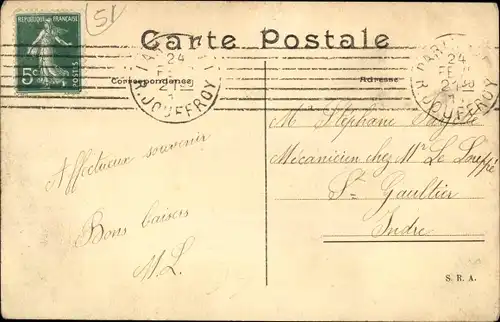 51
RÉPUBLIQUE FRANÇAISE
5c POSTES
Carte Postale
PARIS
24
21 30
R. JOUFFROY
PARIS
24
21 30
R. JOUFFROY
Correspondance
Adresse
Mr Stéphane
Affectueux souvenir
Mécanicien chez Mr Le
St Gaultier
Bons baisers
Indre
M. L.
S. R. A.